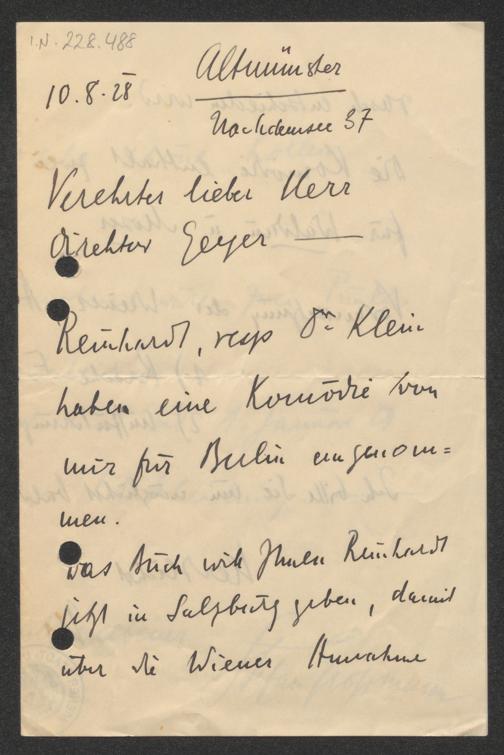 I.N. 228.488
Altmünster
10.8.28
Nachdemsee 37
Verehrter lieber Herr
Direktor Geyer
Reinhardt, resp Dr. Klein
haben eine Komödie von
mir für Berlin angenom=
men.
Das Buch will Ihnen Reinhardt
jetzt in Salzburg geben, damit
über die Wiener Annahme